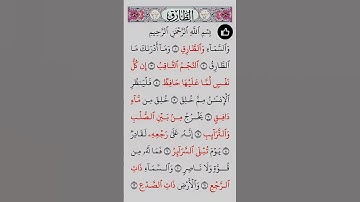 الطارق
بِسْمِ ٱللَّهِ ٱلرَّحْمَٰنِ ٱلرَّحِيمِ
وَٱلسَّمَآءِ وَٱلطَّارِقِ ۝ وَمَآ أَدْرَىٰكَ مَا
ٱلطَّارِقُ ۝ ٱلنَّجْمُ ٱلثَّاقِبُ ۝ إِن كُلُّ
نَفْسٍ لَّمَّا عَلَيْهَا حَافِظٌ ۝ فَلْيَنظُرِ
ٱلْإِنسَٰنُ مِمَّ خُلِقَ ۝ خُلِقَ مِن مَّآءٍ
دَافِقٍ ۝ يَخْرُجُ مِنۢ بَيْنِ ٱلصُّلْبِ
وَٱلتَّرَآئِبِ ۝ إِنَّهُۥ عَلَىٰ رَجْعِهِۦ لَقَادِرٌ
۝ يَوْمَ تُبْلَى ٱلسَّرَآئِرُ ۝ فَمَا لَهُۥ مِن
قُوَّةٍ وَلَا نَاصِرٍ ۝ وَٱلسَّمَآءِ ذَاتِ
ٱلرَّجْعِ ۝ وَٱلْأَرْضِ ذَاتِ ٱلصَّدْعِ ۝